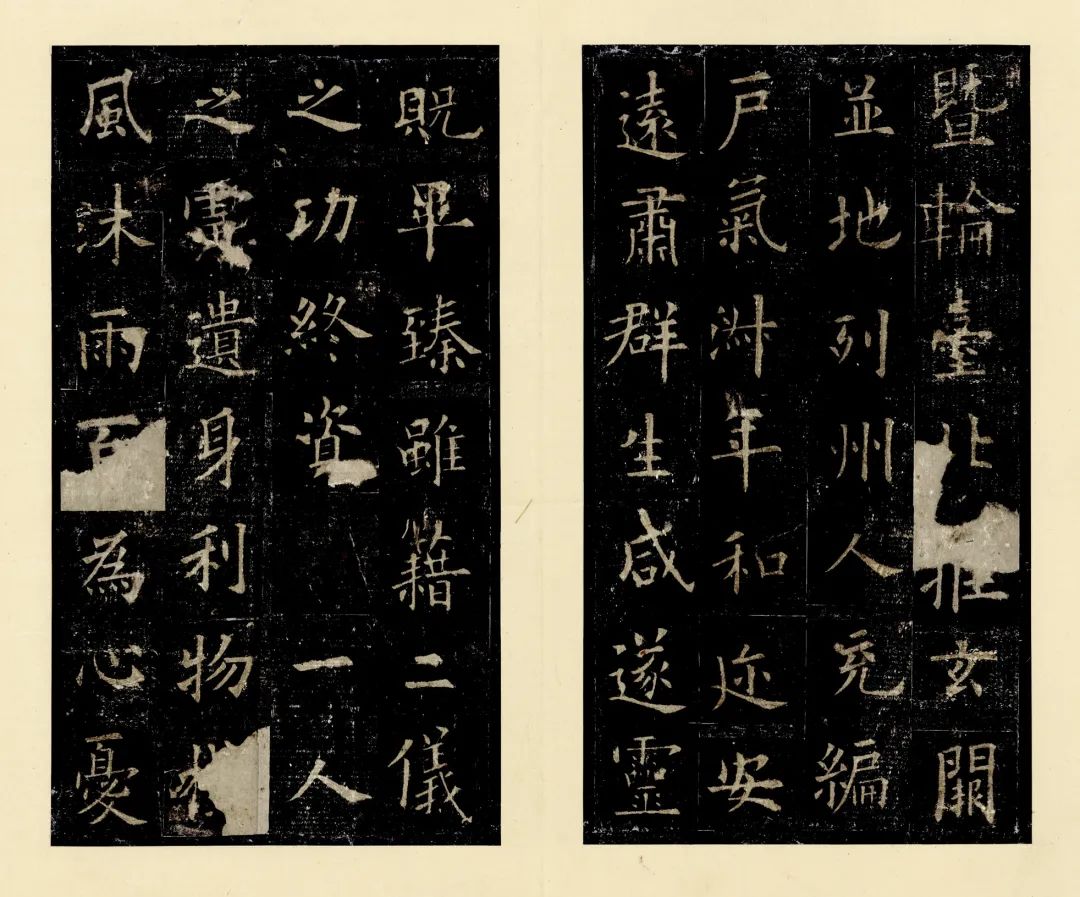 暨輪臺北拒玄闕
並地列州人充編
戶氣淑年和迩安
遠肅群生咸遂靈
貺畢臻雖藉二儀
之功終資一人
之慮遺身利物
風沐雨百為心憂